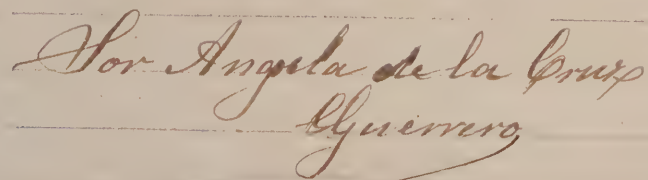 Sor Angela de la Cruz
Guerrero